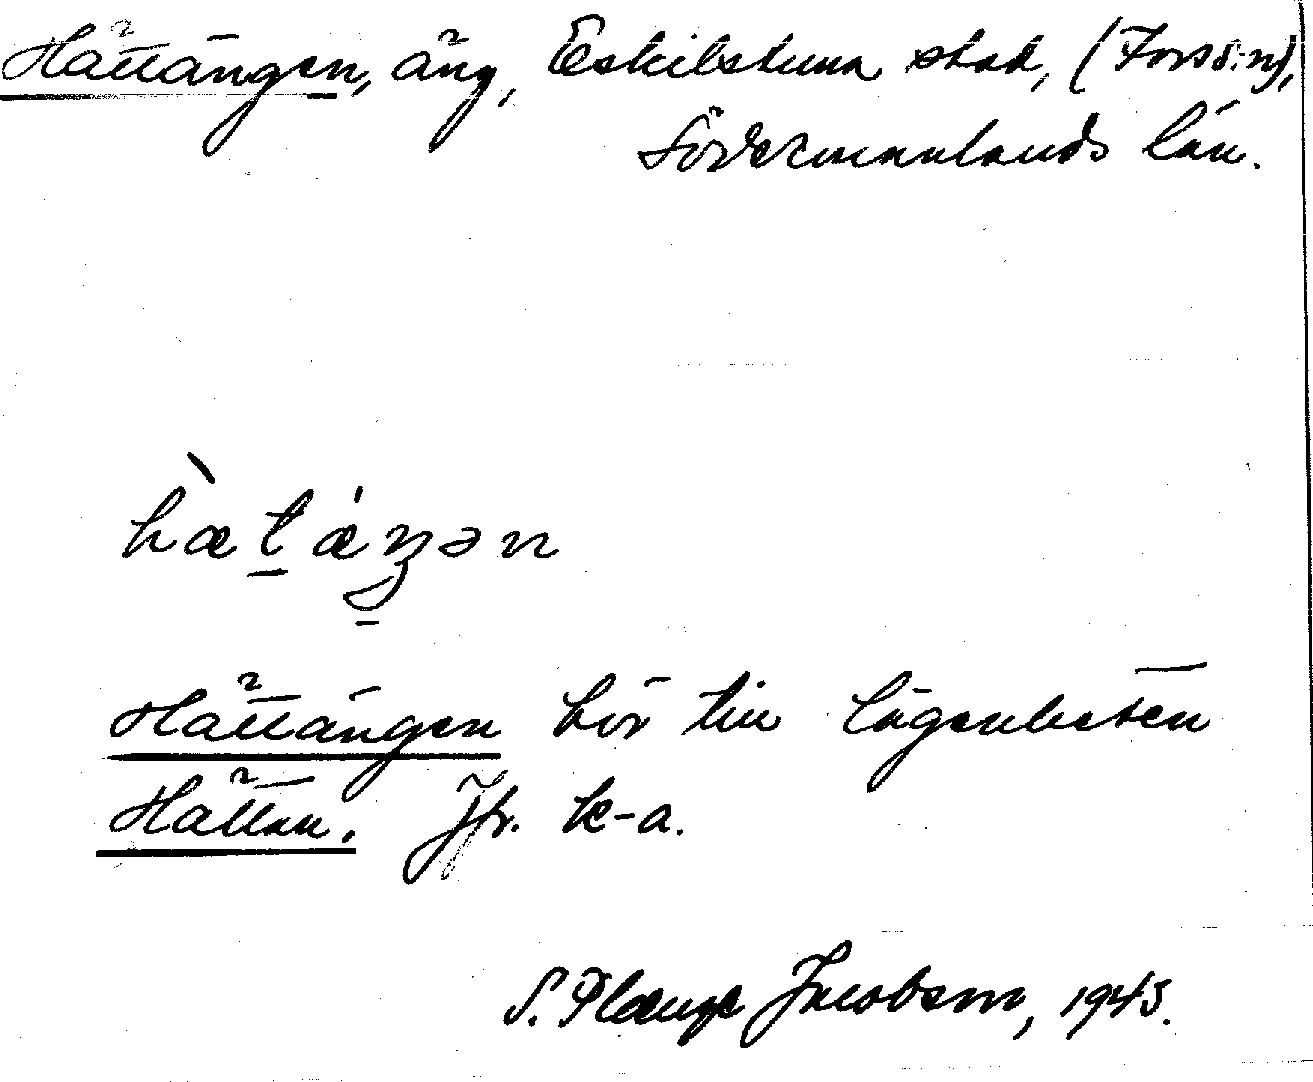 Hättängen, äng, Eskilstuna stad, (Fors s:n),
Södermanlands län.
hætæŋən
Hättängen hör till lägenheten
Hättan. Jfr. k-a.
S. Plænge Jacobson, 1945.